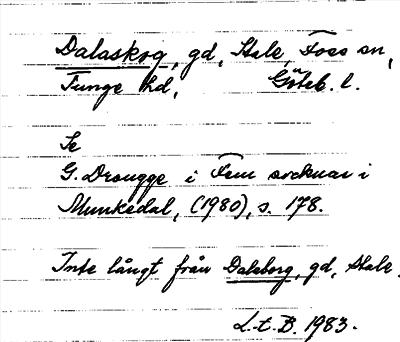 Dalaskog, gd, Hale, Foss sn,
Tunge hd, Göteb. l.
Se
G. Drougge i Fem socknar i
Munkedal, (1980), s. 178.
Inte långt från Dalaborg, gd, Hale.
L.t.B. 1983.